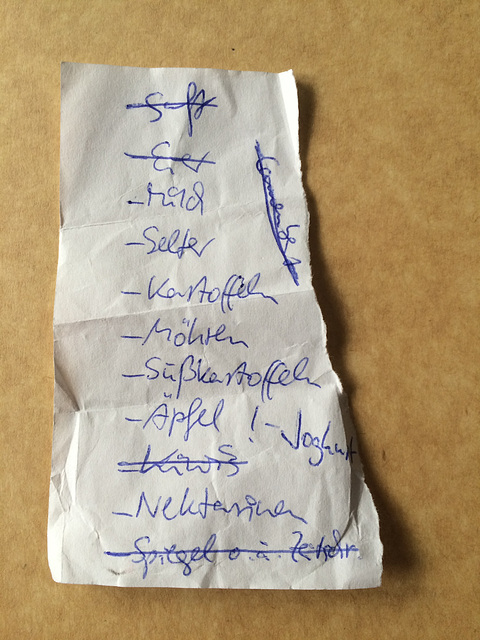 - Saft
- Eier
- Milch
- Selter
- Kartoffeln
- Möhren
- Süßkartoffeln
- Äpfel ! - Joghurt
- Kiwis
- Nektarinen
- Spiegel o. ä. Zeitschr.